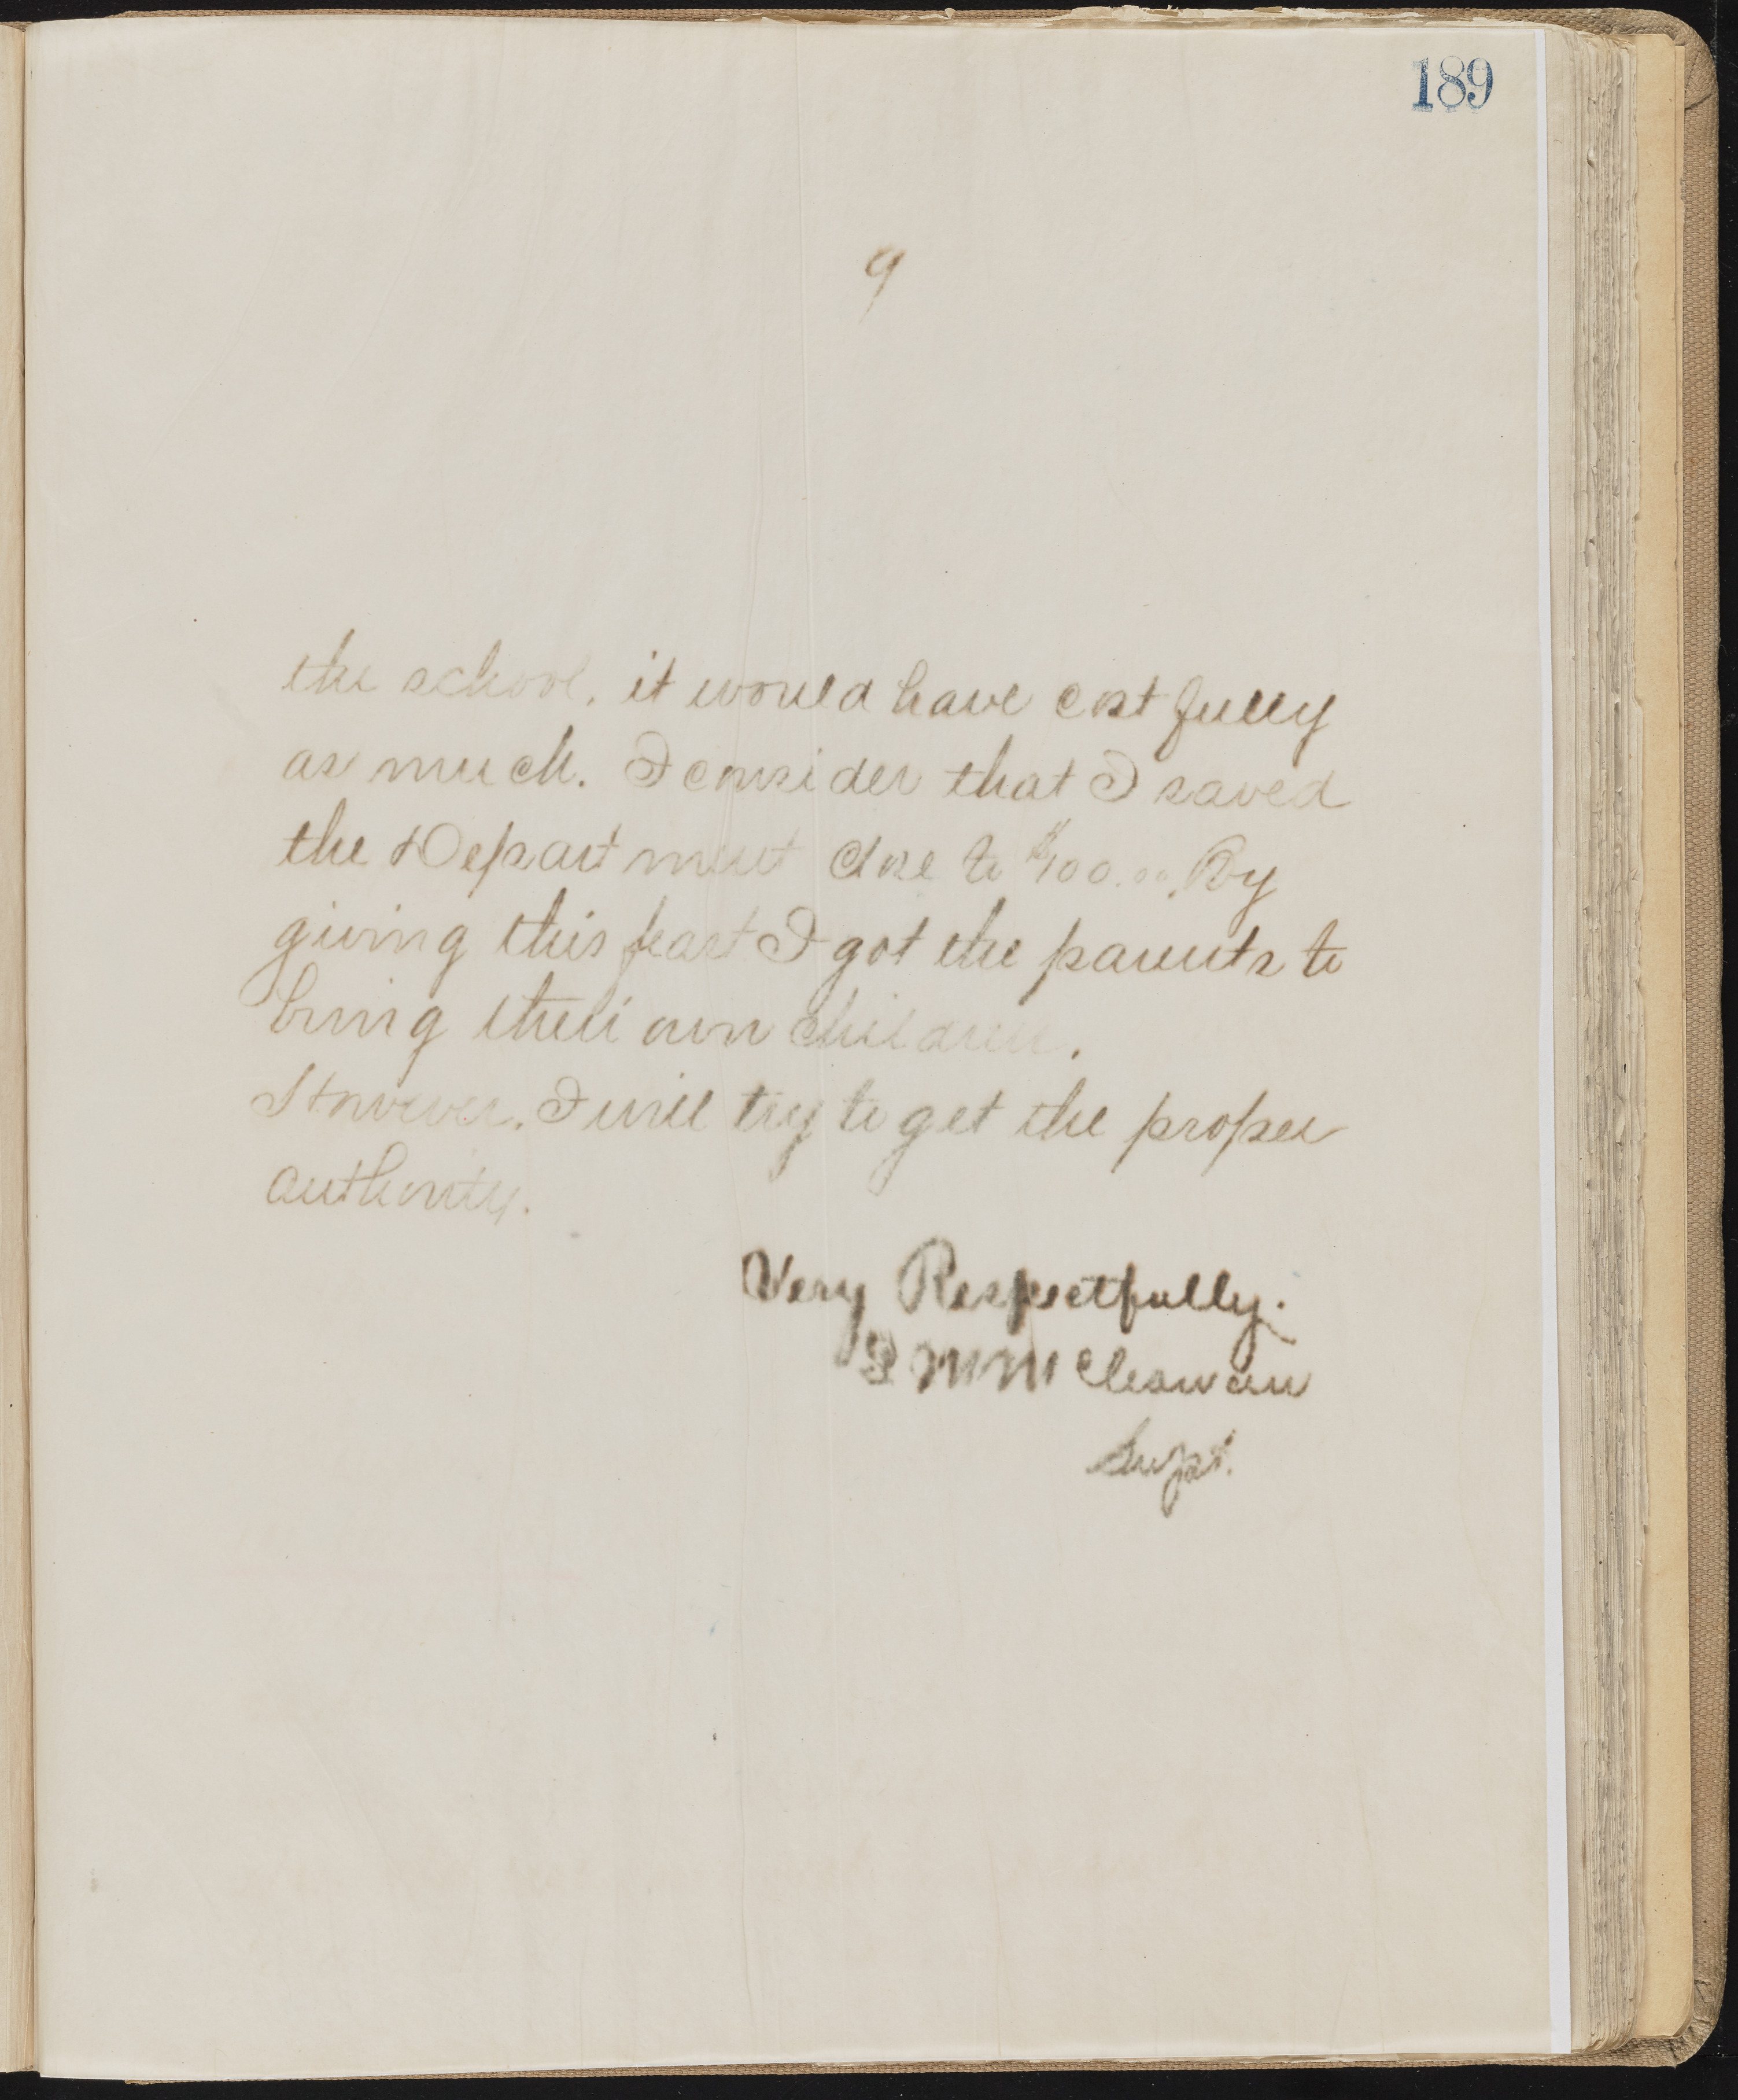 189
9
the school. it would have cost fully
as much. I consider that I saved
the Department close to $100.00. By
giving this feast I got the parents to
bring their own children.
However. I will try to get the proper
authority.
Very Respectfully.
Supt.